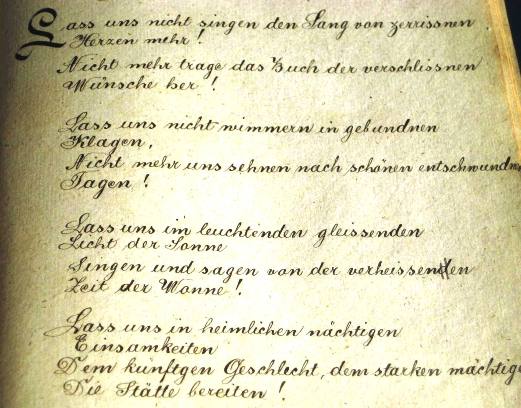 Lass uns nicht singen den Sang von zerrissnen
Herzen mehr!
Nicht mehr trage das Buch der verschlissnen
Wünsche her!
Lass uns nicht wimmern in gebundnen
Klagen,
Nicht mehr uns sehnen nach schönen entschwundnen
Tagen!
Lass uns im leuchtenden gleissenden
Licht der Sonne
Singen und sagen von der verheissenden
Zeit der Wonne!
Lass uns in heimlichen nächtigen
Einsamkeiten
Dem künftgen Geschlecht, dem starken mächtig
Die Stätte bereiten!